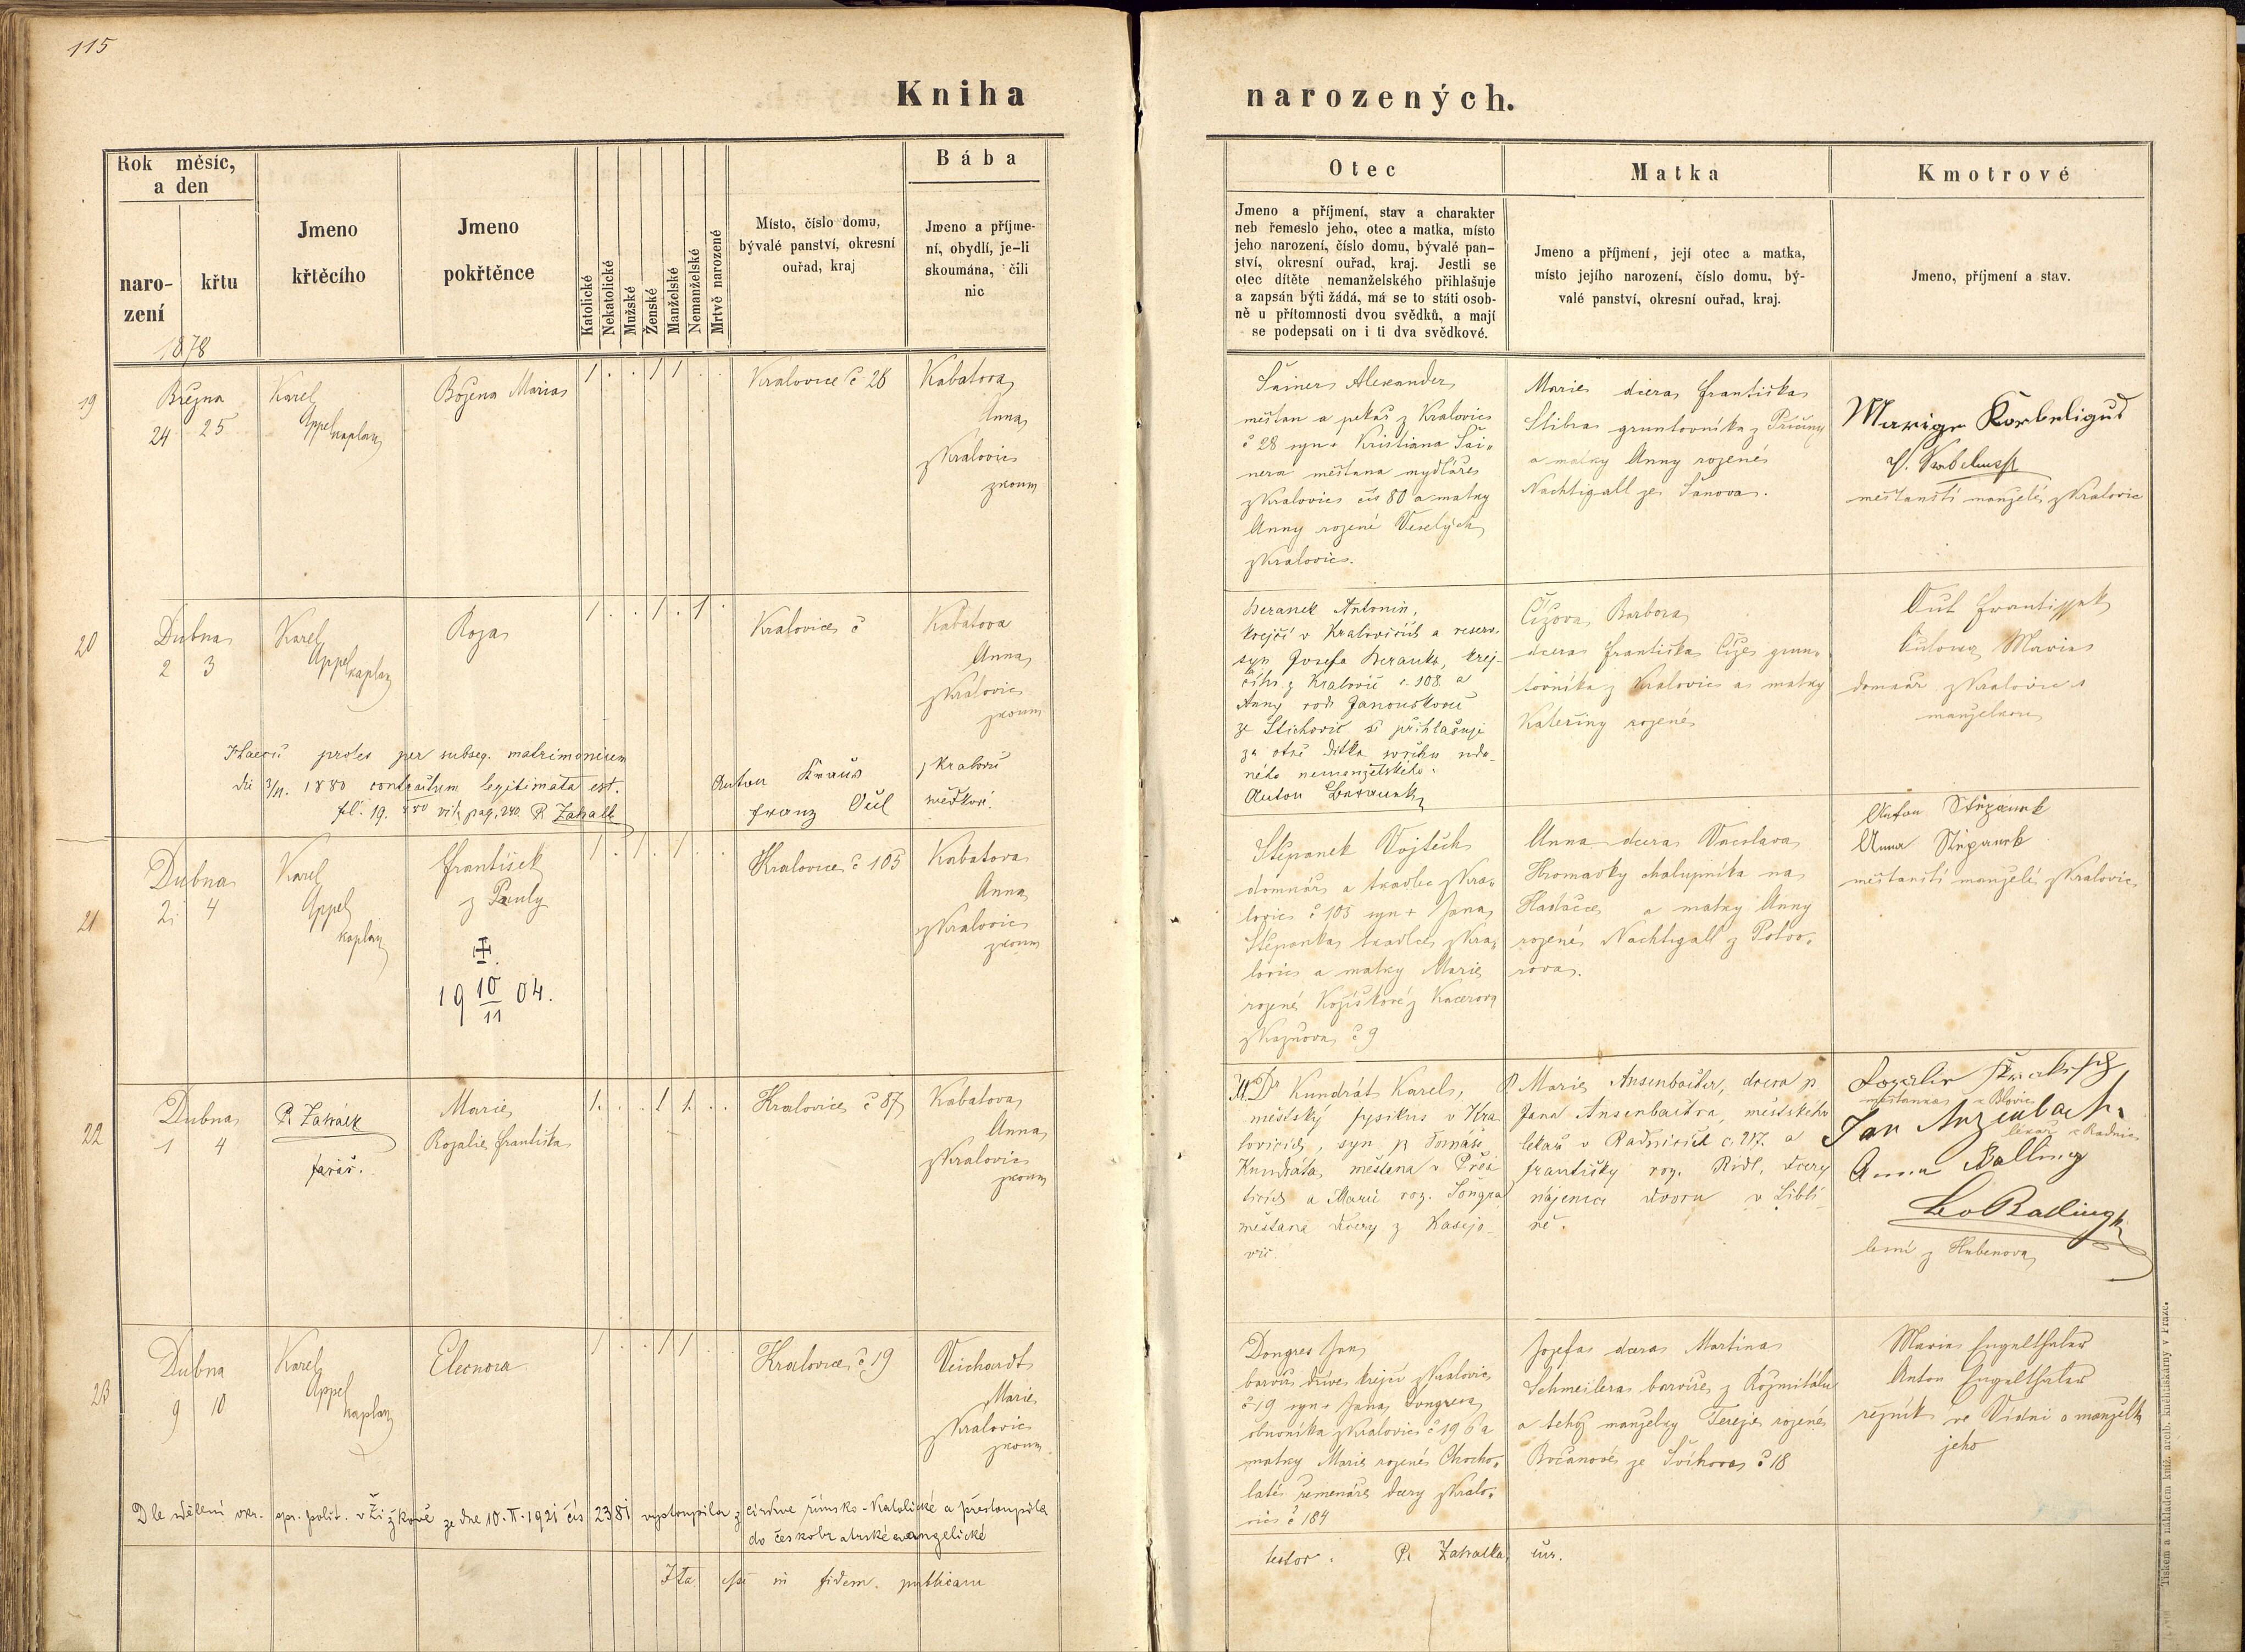 115
Kniha narozených.
Rok měsíc,
a den
naro-
zení
křtu
1878
Jmeno
křtěcího
Jmeno
pokřtěnce
Katolické
Nekatolické
Mužské
Ženské
Manželské
Nemanželské
Mrtvě narozené
Místo, číslo domu,
bývalé panství, okresní
ouřad, kraj
Bába
Jmeno a příjme-
ní, obydlí, je-li
skoumána, čili
nic
Otec
Jmeno a příjmení, stav a charakter
neb řemeslo jeho, otec a matka, místo
jeho narození, číslo domu, bývalé pan-
ství, okresní ouřad, kraj. Jestli se
otec dítěte nemanželského přihlašuje
a zapsán býti žádá, má se to státi osob-
ně u přítomnosti dvou svědků, a mají
se podepsati on i ti dva svědkové.
Matka
Jmeno a příjmení, její otec a matka,
místo jejího narození, číslo domu, bý-
valé panství, okresní ouřad, kraj.
Kmotrové
Jmeno, příjmení a stav.
19
Března
24 25
Karel
Appel
kaplan
Božena Maria
1 . . 1 1 . .
Kralovice č 28
Kabatova
Anna
z Kralovic
zkoum
Šainer Alexander
měštan a pekař z Kralovic
č 28 syn + Kristiana Šai-
nera měštana mydláře
z Kralovic čis 80 a matky
Anny rozené Veselých
z Kralovic.
Marie dcera Františka
Stibra gruntovníka z
a matky Anny rozené
Nachtigall ze Šanova.
měštanští manželé z Kralovic
20
Dubna
2 3
Karel
Appel
kaplan
Roza
1 . . 1 . 1 .
Kralovice č
Kabatova
Anna
z Kralovic
zkoum
Beranek Antonin,
krejčí v Kralovicích a reserv.
syn Josefa Beranka, krej-
čího z Kralovic č. 108 a
Anny roz. Janouškové
ze Stichovic se přihlašuje
za otce dítka svrchu uda-
ného nemanželského.
Anton Beranek
Čížova Barbora
dcera Františka Čiže grun-
tovníka z Kralovic a matky
Kateřiny rozené
Oul Frantissek
Oulowa Maria
domkař z Kralovic s
manželkou
proles per subseq. matrimonium
die 3/11. 1880 contractum legitimata est.
Anton Kraus
Franz Oul
z Kralovic
svědkové.
21
Dubna
2. 4
Karel
Appel
kaplan
František
z Pauly
19 10/11 04.
1 . 1 . 1 . .
Kralovice č 105
Kabatova
Anna
z Kralovic
zkoum
Štěpanek Vojtěch
domkář a tkadlec z Kra-
lovic č 105 syn + Jana
Štěpanka tkadlce z Kra-
lovic a matky Marie
rozené Kožíškové z Kacerova
z Kaznova č 9
Anna dcera Vacslava
Hromadky chalupníka na
Hadačce a matky Anny
rozené Nachtigall z Potvo-
rova.
Anton Štěpanek
Anna Štěpanek
měštanští manželé z Kralovic
22
Dubna
1 4
farář.
Marie
Rozalie Františka
1 . . 1 1 . .
Kralovice č 87
Kabatova
Anna
z Kralovic
zkoum
M.Dr Kundrát Karel,
městský fysikus v Kra
lovicích, syn p. Tomáše
Kundráta, měštana v Přeš
ticích a Marie roz. Šongra
měštana dcery z Kasejo-
vic
P. Marie Ansenbacher, dcera p
Jana Ansenbachra, městského
lekaře v Radnicích č. 217. a
Františky roz. Ridl, dcery
nájemce dvoru v Liblí
ně.
měštanka z Blovic
lékař z Radnic
Anna Balling
Leo Balling
lesní z Hubenova
23
Dubna
9 10
Karel
Appel
kaplan
Eleonora
1 . . 1 1 . .
Kralovice č 19
Veichardt
Marie
z Kralovic
zkoum
Dongres Jan
barvíř dříve krejčí z Kralovic
č 19 syn + Jana Dongresa
obuvníka z Kralovic č 196 a
matky Marie rozené Chocho-
laté řemenáře dcery z Kralo-
vic č 184
Josefa dcera Martina
Schmeilera barvíře z Rožmitálu
a tehož manželky Terezie rozené
Bočanové ze Švihova č 18
Maria Engelthaler
Anton Engelthaler
řezník ve Vídni a manželka
jeho
Dle sdělení okr. spr. polit. v Žižkově ze dne 10.II.1921 čís 2381 vystoupila z církve římsko-katolické a přestoupila
do českobratrské evangelické
Ita esse in fidem publicam
testor. P. Zahalka
Tiskem a nákladem kníž. arcib. knihtiskárny v Praze.